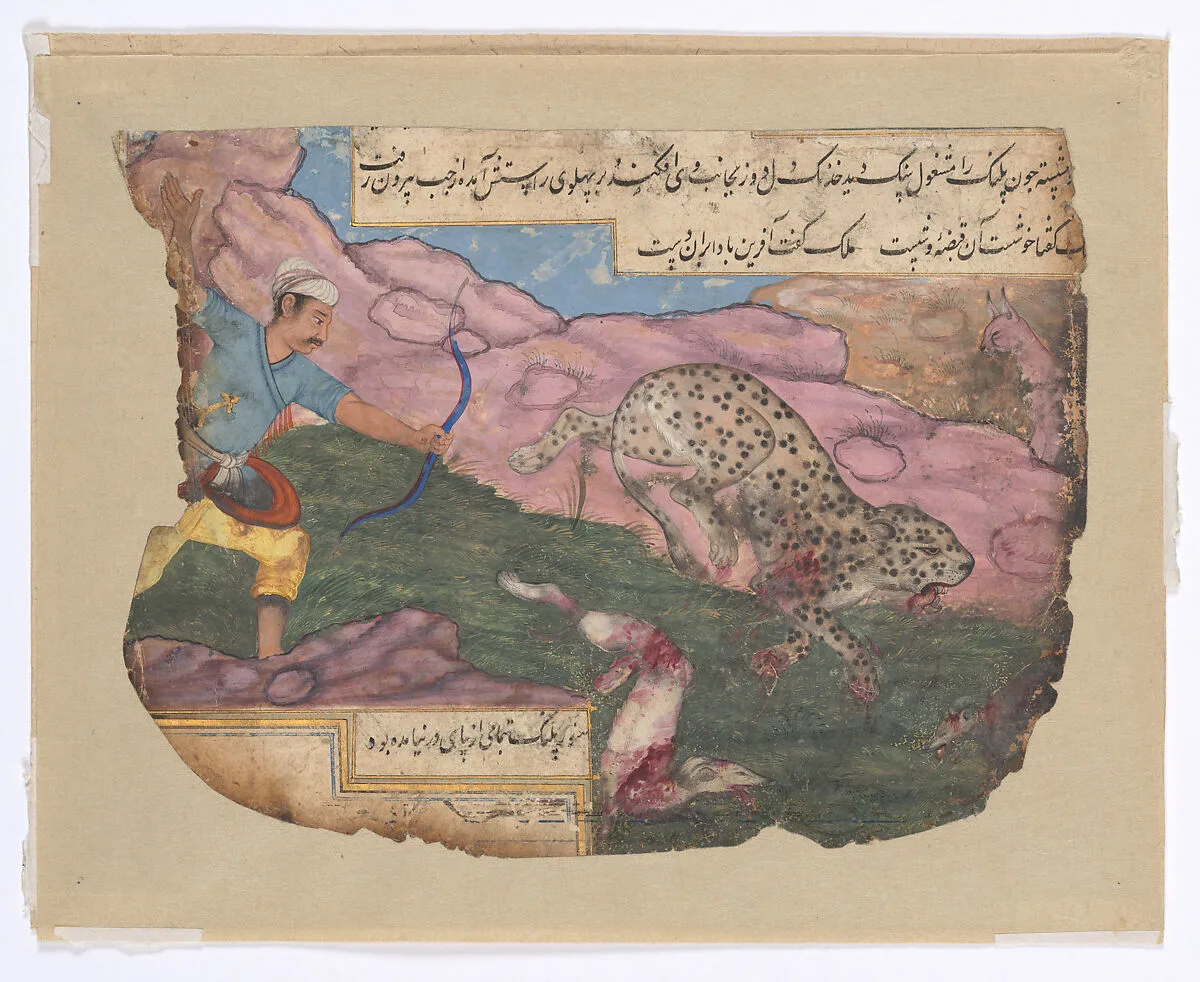 نشسته چون پلنگ را مشغول دید خدنک دل دوز بجانب وی افکند بر پهلوی راستش آمده از چپ بیرون رفت
گفتا خوشست آن قبضه و شست ملک گفت آفرین بادا بران دست
هنوز پلنک تمامی از پای در نیامده بود